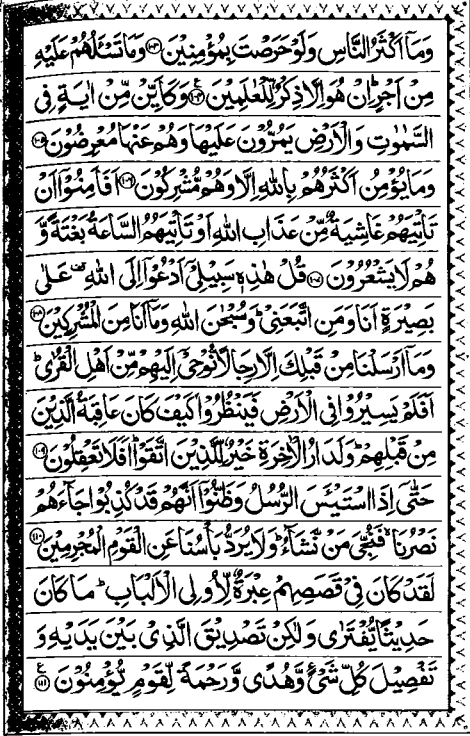 وَمَآ اَكْثَرُ النَّاسِ وَلَوْ حَرَصْتَ بِمُؤْمِنِيْنَ ﴿١٠٣﴾ وَمَا تَسْـَٔلُهُمْ عَلَيْهِ
مِنْ اَجْرٍ ؕ اِنْ هُوَ اِلَّا ذِكْرٌ لِّلْعٰلَمِيْنَ ﴿١٠٤﴾ ع وَكَاَيِّنْ مِّنْ اٰيَةٍ فِى
السَّمٰوٰتِ وَالْاَرْضِ يَمُرُّوْنَ عَلَيْهَا وَهُمْ عَنْهَا مُعْرِضُوْنَ ﴿١٠٥﴾
وَمَا يُؤْمِنُ اَكْثَرُهُمْ بِاللّٰهِ اِلَّا وَهُمْ مُّشْرِكُوْنَ ﴿١٠٦﴾ اَفَاَمِنُوْٓا اَنْ
تَاْتِيَهُمْ غَاشِيَةٌ مِّنْ عَذَابِ اللّٰهِ اَوْ تَاْتِيَهُمُ السَّاعَةُ بَغْتَةً وَّ
هُمْ لَا يَشْعُرُوْنَ ﴿١٠٧﴾ قُلْ هٰذِهٖ سَبِيْلِىْٓ اَدْعُوْٓا اِلَى اللّٰهِ ؔ عَلٰى
بَصِيْرَةٍ اَنَا وَمَنِ اتَّبَعَنِىْ ؕ وَسُبْحٰنَ اللّٰهِ وَمَآ اَنَا مِنَ الْمُشْرِكِيْنَ ﴿١٠٨﴾
وَمَآ اَرْسَلْنَا مِنْ قَبْلِكَ اِلَّا رِجَالًا نُّوْحِىْٓ اِلَيْهِمْ مِّنْ اَهْلِ الْقُرٰى ؕ
اَفَلَمْ يَسِيْرُوْا فِى الْاَرْضِ فَيَنْظُرُوْا كَيْفَ كَانَ عَاقِبَةُ الَّذِيْنَ
مِنْ قَبْلِهِمْ ؕ وَلَدَارُ الْاٰخِرَةِ خَيْرٌ لِّلَّذِيْنَ اتَّقَوْا ؕ اَفَلَا تَعْقِلُوْنَ ﴿١٠٩﴾
حَتّٰٓى اِذَا اسْتَيْـَٔسَ الرُّسُلُ وَظَنُّوْٓا اَنَّهُمْ قَدْ كُذِبُوْا جَآءَهُمْ
نَصْرُنَا ۙ فَنُجِّىَ مَنْ نَّشَآءُ ؕ وَلَا يُرَدُّ بَاْسُنَا عَنِ الْقَوْمِ الْمُجْرِمِيْنَ ﴿١١٠﴾
لَقَدْ كَانَ فِىْ قَصَصِهِمْ عِبْرَةٌ لِّاُولِى الْاَلْبَابِ ؕ مَا كَانَ
حَدِيْثًا يُّفْتَرٰى وَلٰكِنْ تَصْدِيْقَ الَّذِىْ بَيْنَ يَدَيْهِ وَ
تَفْصِيْلَ كُلِّ شَىْءٍ وَّهُدًى وَّرَحْمَةً لِّقَوْمٍ يُّؤْمِنُوْنَ ﴿١١١﴾ ع